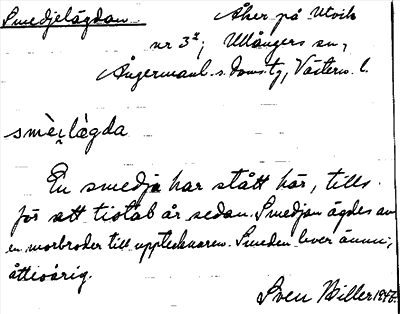 Smedjelägdan Åker på Utvik
nr 3², Ullångers sn,
Ångermanl. s. doms.tg, Västern. l.
smè̀ làgda
En smedja har stått här, tills
för ett tiotal år sedan. Smedjan ägdes av
en morbroder till upptecknaren. Smeden lever ännu,
åttioårig.
Sven Biller 1946.